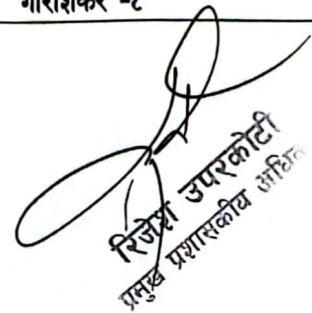 गौरीशंकर -८
रिजेश उपरकोटी
प्रमुख प्रशासकीय